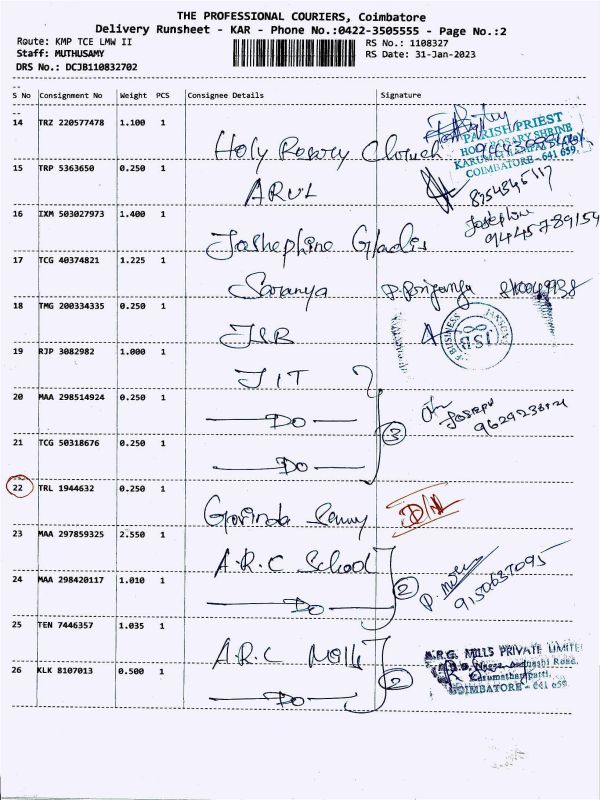 THE PROFESSIONAL COURIERS, Coimbatore
Delivery Runsheet - KAR - Phone No.:0422-3505555 - Page No.:2
Route: KMP TCE LMW II
RS No.: 1108327
Staff: MUTHUSAMY
RS Date: 31-Jan-2023
DRS No.: DCJB110832702
S No Consignment No Weight PCS Consignee Details Signature
14 TRZ 220577478 1.100 1 Holy Rosary Church
PARISH PRIEST
HOLY ROSARY SHRINE
COIMBATORE - 641 659.
15 TRP 5363650 0.250 1 ARUL
8754545117
16 IXM 503027973 1.400 1 Jashephine Gladis
Josephine
9444578915
17 TCG 40374821 1.225 1 Saranya P. Priyanga
18 TMG 200334335 0.250 1 JSB
JSB
BUSINESS
19 RJP 3082982 1.000 1 JIT
20 MAA 298514924 0.250 1 Do
3
Joseph
21 TCG 50318676 0.250 1 Do
22 TRL 1944632 0.250 1 Govinda Samy D/L
23 MAA 297859325 2.550 1 A.R.C School
24 MAA 298420117 1.010 1 Do
2
9150637095
25 TEN 7446357 1.035 1 A.R.C Mills
A.R.G. MILLS PRIVATE LIMITED
Road,
Karumathampatti,
COIMBATORE - 641 659.
26 KLK 8107013 0.500 1 Do
2